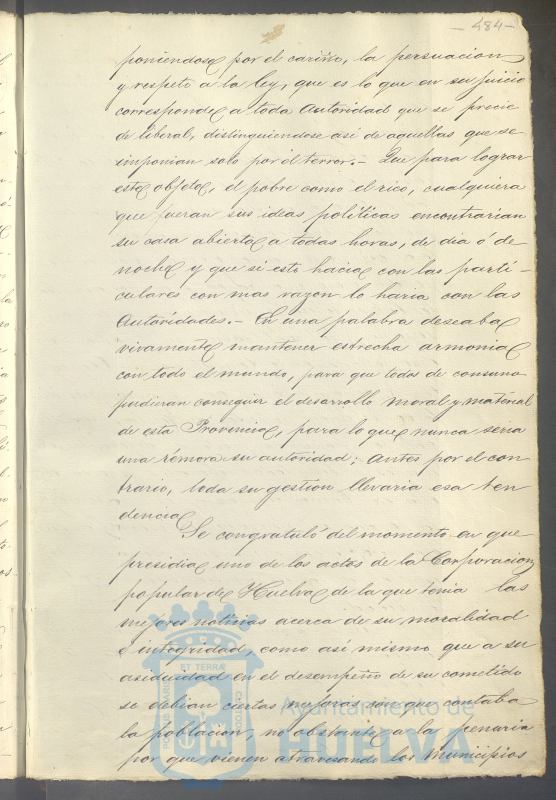 - 484 -
poniendose por el cariño, la persuacion
y respeto a la ley, que es lo que en su juicio
corresponde a toda Autoridad que se precie
de liberal, distinguiendose asi de aquellas que se
imponian solo por el terror.- Que para lograr
este objeto, el pobre como el rico, cualquiera
que fueran sus ideas politicas encontrarian
su casa abierta a todas horas, de dia ó de
noche y que si esto hacia con las parti-
culares con mas razon lo haria con las
Autoridades.- En una palabra deseaba
vivamente mantener estrecha armonia
con todo el mundo, para que todos de consuno
pudieran conseguir el desarrollo moral y material
de esta Provincia, para lo que nunca seria
una rémora su autoridad; Antes por el con
trario, toda su gestion llevaria esa ten
dencia
Se congratuló del momento en que
presidia uno de los actos de la Corporacion
popular de Huelva de la que tenia las
mejores noticias acerca de su moralidad
é integridad, como asi mismo que a su
asiduidad en el desempeño de su cometido
se debian ciertas mejoras con que contaba
la poblacion, no obstante a la penuria
por que vienen atravesando los Municipios
Ayuntamiento de
HUELVA
PORTUS MARIS ET TERRÆ CUSTODIA